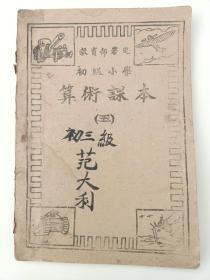 教育部審定
初級小學
算術課本
(五)
初三級
范大利